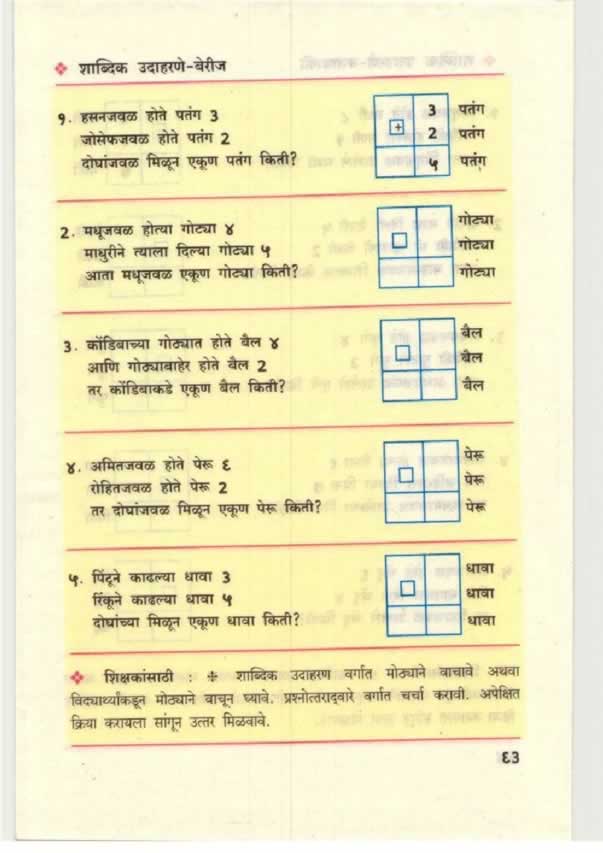 ❖ शाब्दिक उदाहरणे-बेरीज
१. हसनजवळ होते पतंग ३
जोसेफजवळ होते पतंग २
दोघांजवळ मिळून एकूण पतंग किती?
३ पतंग
+ २ पतंग
५ पतंग
२. मधूजवळ होत्या गोट्या ४
माधुरीने त्याला दिल्या गोट्या ५
आता मधूजवळ एकूण गोट्या किती?
गोट्या
गोट्या
गोट्या
३. कोंडिबाच्या गोठ्यात होते बैल ४
आणि गोठ्याबाहेर होते बैल २
तर कोंडिबाकडे एकूण बैल किती?
बैल
बैल
बैल
४. अमितजवळ होते पेरू ६
रोहितजवळ होते पेरू २
तर दोघांजवळ मिळून एकूण पेरू किती?
पेरू
पेरू
पेरू
५. पिंटूने काढल्या धावा ३
रिंकूने काढल्या धावा ५
दोघांच्या मिळून एकूण धावा किती?
धावा
धावा
धावा
❖ शिक्षकांसाठी : ÷ शाब्दिक उदाहरण वर्गात मोठ्याने वाचावे अथवा
विद्यार्थ्यांकडून मोठ्याने वाचून घ्यावे. प्रश्नोत्तराद्वारे वर्गात चर्चा करावी. अपेक्षित
क्रिया करायला सांगून उत्तर मिळवावे.
६३